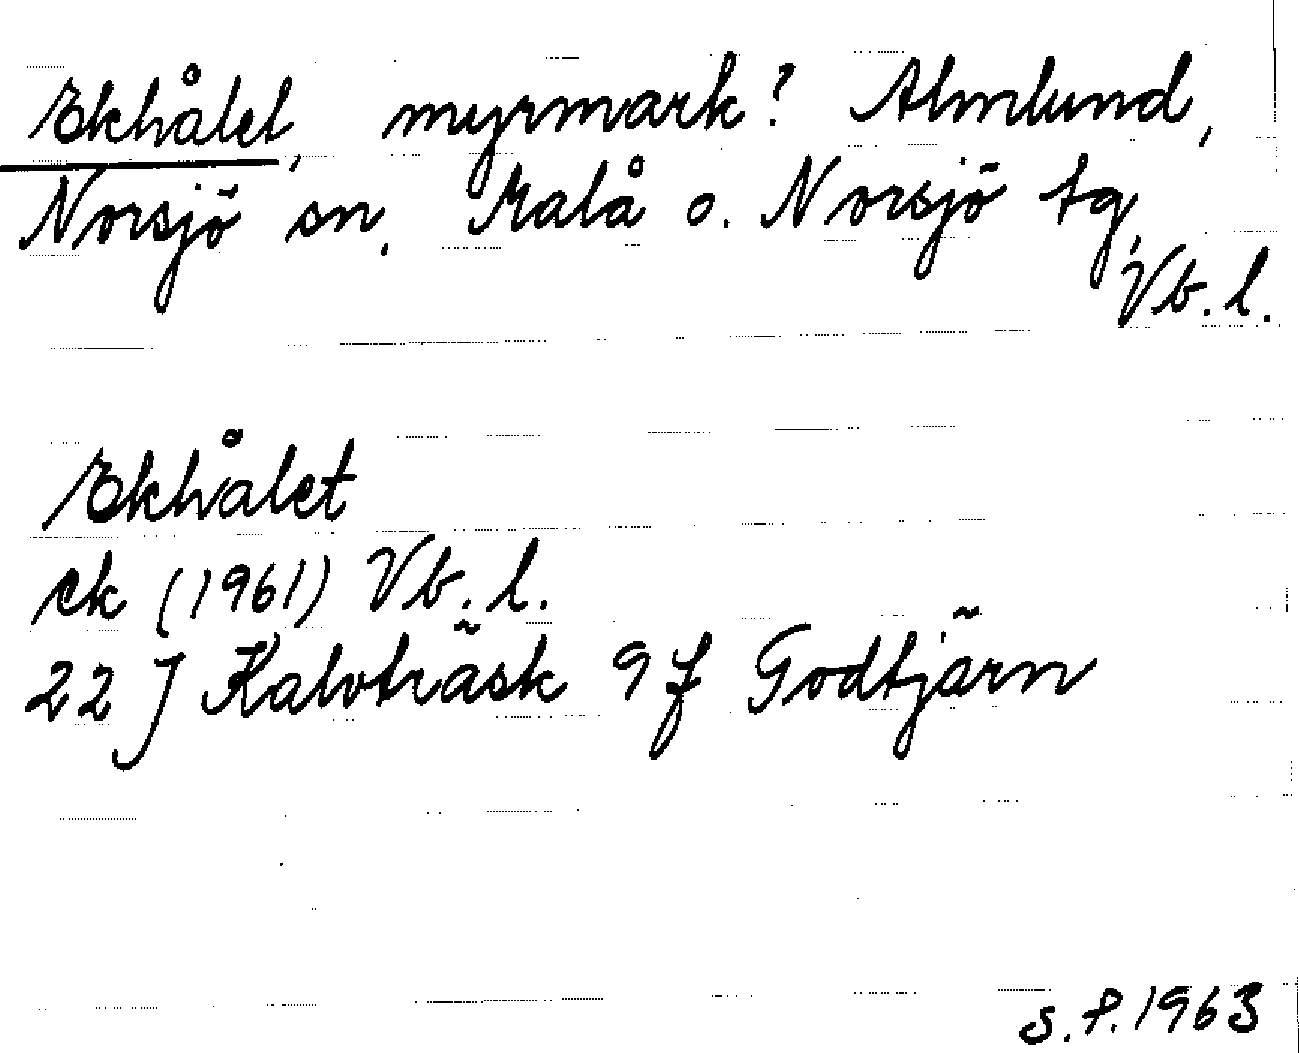 Ekhålet, myrmark? Almlund,
Norsjö sn. Malå o. Norsjö tg,
Vb. l.
Ekhålet
ek (1961) Vb. l.
22 J Kalvträsk 9 f Godtjärn
S. P. 1963